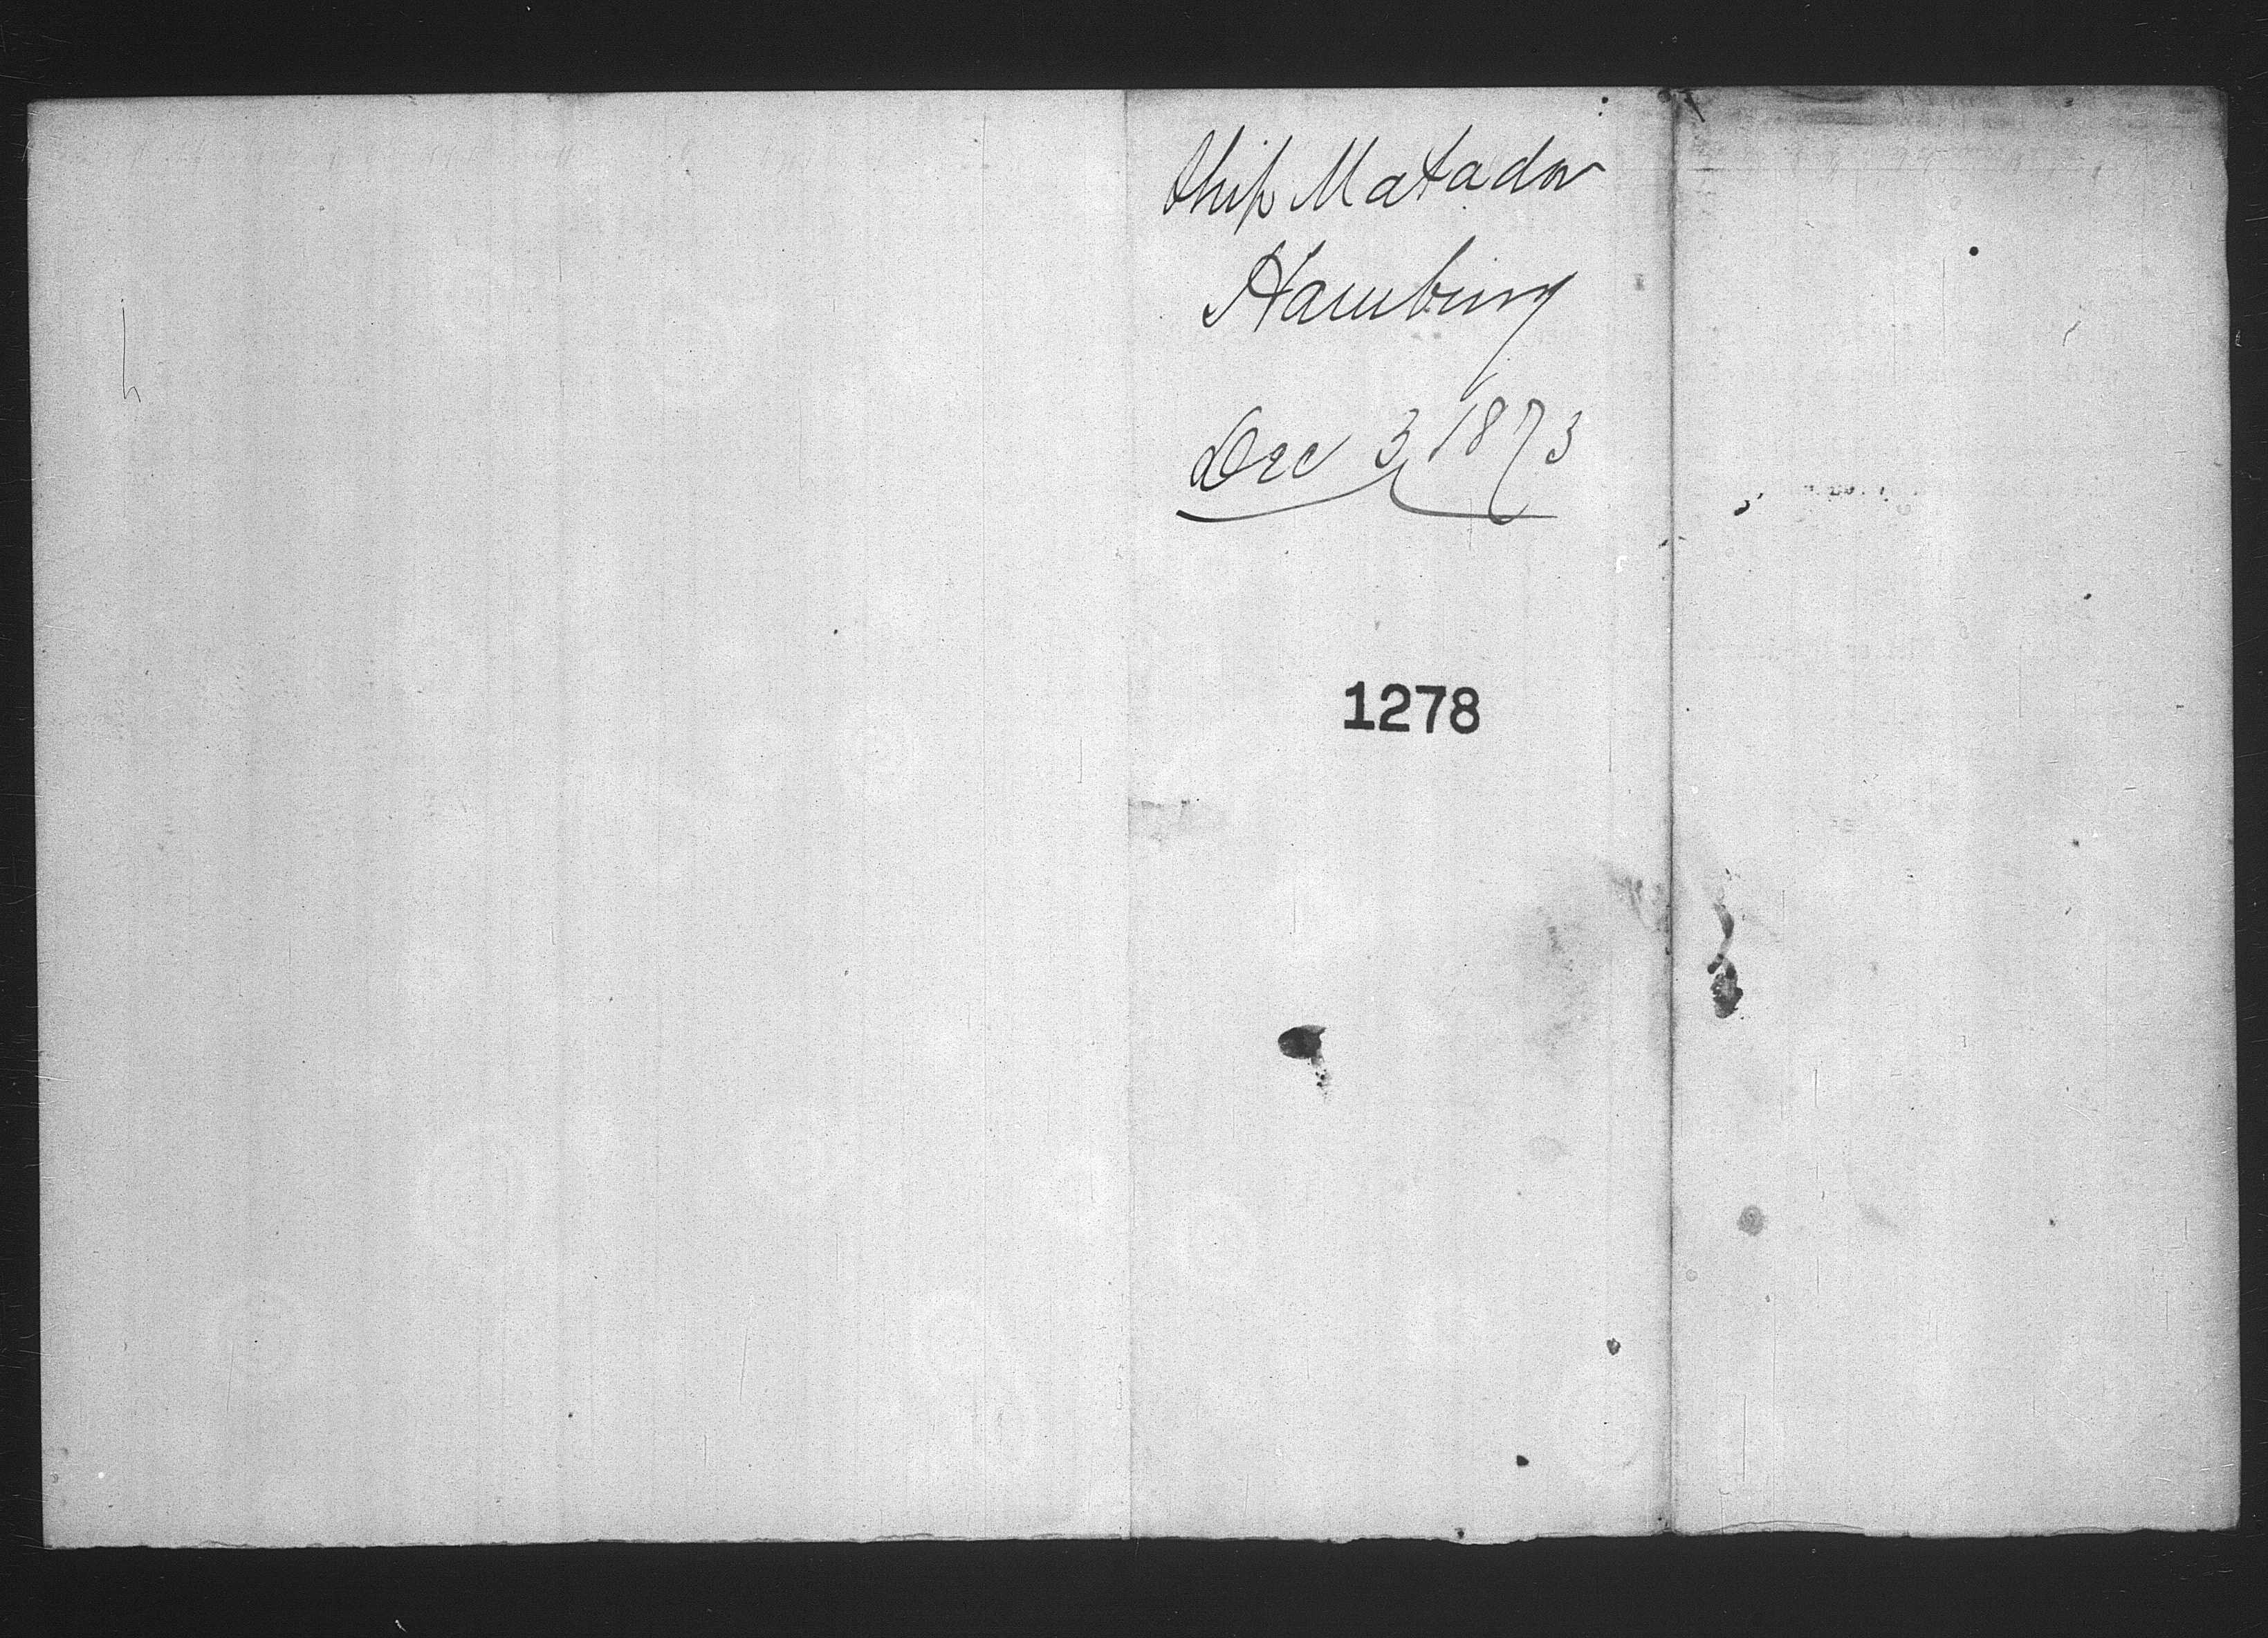 Ship Matador
Hamburg
Dec 3, 1873
1278